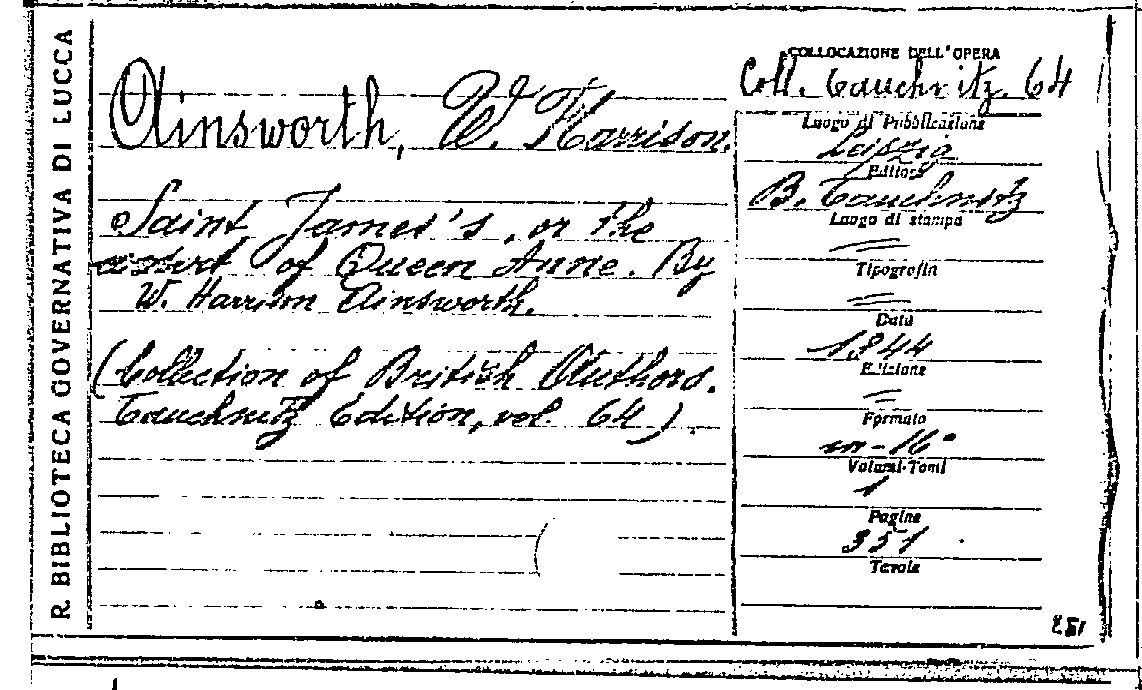 R. BIBLIOTECA GOVERNATIVA DI LUCCA
Ainsworth, W. Harrison.
Saint James's, or the
court of Queen Anne. By
W. Harrison Ainsworth.
(Collection of British Authors.
Tauchnitz Edition, vol. 64).
COLLOCAZIONE DELL'OPERA
Coll. Tauchnitz. 64
Luogo di Pubblicazione
Leipzig
Editore
B. Tauchnitz
Luogo di stampa
=
Tipografia
=
Data
1844
Edizione
=
Formato
in-16°
Volumi-Tomi
1
Pagine
351
Tavole